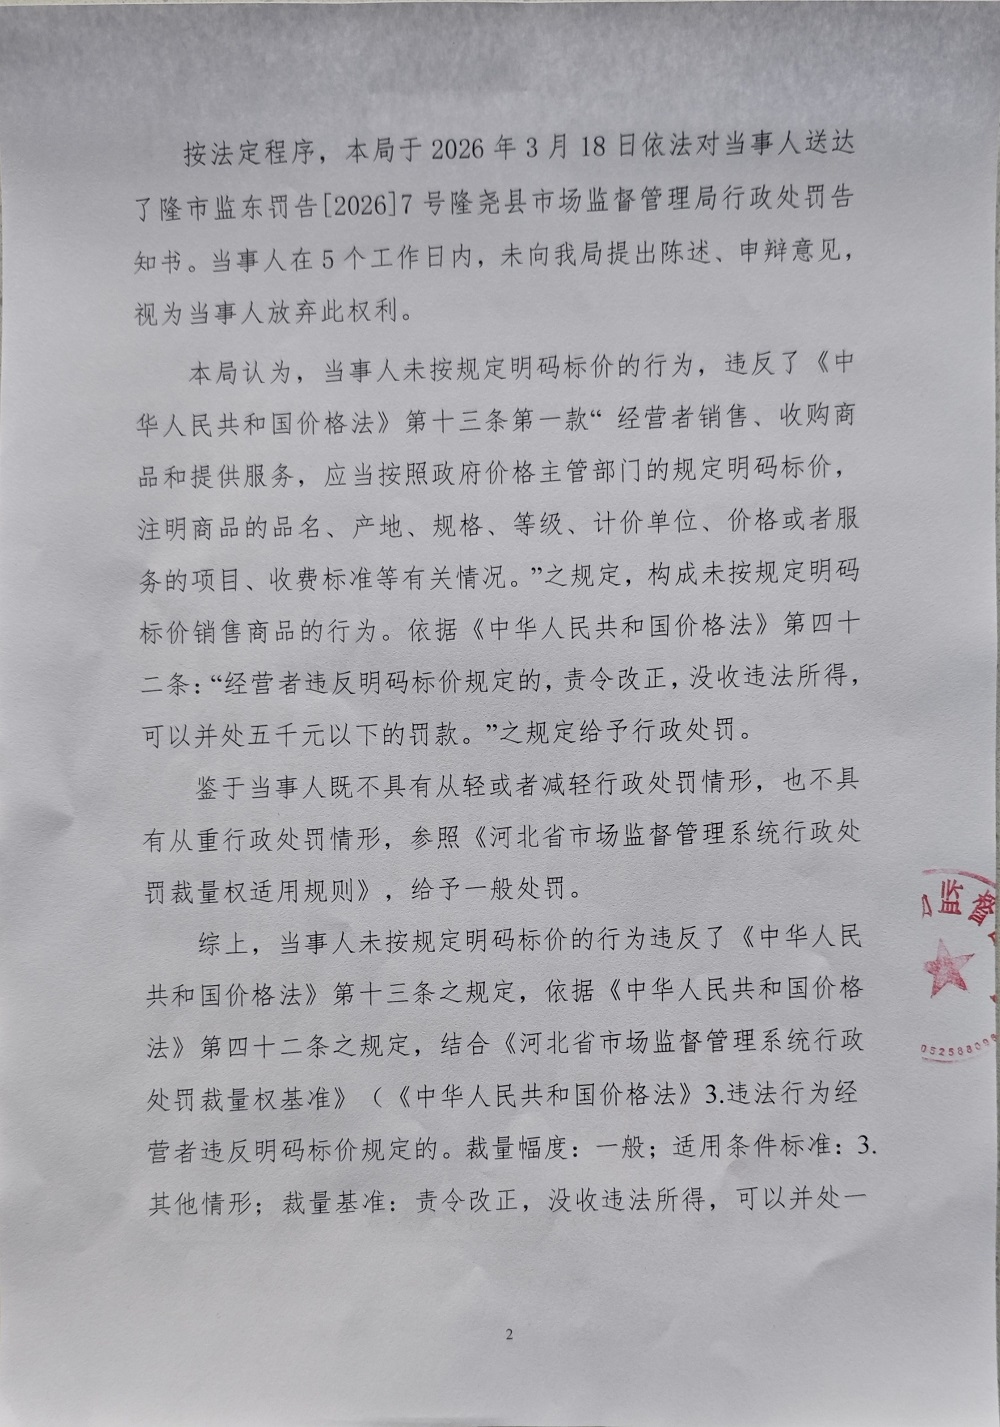 按法定程序，本局于 2026 年 3 月 18 日依法对当事人送达
了隆市监东罚告[2026]7 号隆尧县市场监督管理局行政处罚告
知书。当事人在 5 个工作日内，未向我局提出陈述、申辩意见，
视为当事人放弃此权利。
本局认为，当事人未按规定明码标价的行为，违反了《中
华人民共和国价格法》第十三条第一款“ 经营者销售、收购商
品和提供服务，应当按照政府价格主管部门的规定明码标价，
注明商品的品名、产地、规格、等级、计价单位、价格或者服
务的项目、收费标准等有关情况。”之规定，构成未按规定明码
标价销售商品的行为。依据《中华人民共和国价格法》第四十
二条：“经营者违反明码标价规定的，责令改正，没收违法所得，
可以并处五千元以下的罚款。”之规定给予行政处罚。
鉴于当事人既不具有从轻或者减轻行政处罚情形，也不具
有从重行政处罚情形，参照《河北省市场监督管理系统行政处
罚裁量权适用规则》，给予一般处罚。
综上，当事人未按规定明码标价的行为违反了《中华人民
共和国价格法》第十三条之规定，依据《中华人民共和国价格
法》第四十二条之规定，结合《河北省市场监督管理系统行政
处罚裁量权基准》（《中华人民共和国价格法》3.违法行为经
营者违反明码标价规定的。裁量幅度：一般；适用条件标准：3.
其他情形；裁量基准：责令改正，没收违法所得，可以并处一
监督
052588098
2